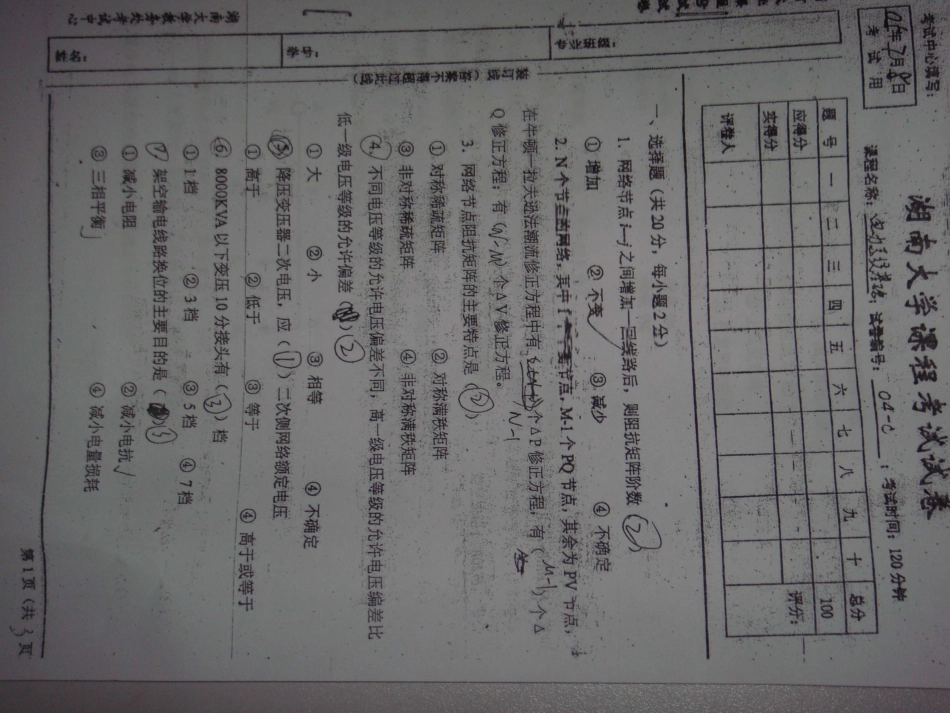 考试中心填写:
年7月 日
考试用
湖南大学课程考试试卷
课程名称: 电力系统基础; 试卷编号: 04-C ; 考试时间: 120分钟
题号 一 二 三 四 五 六 七 八 九 十 总分
应得分 100
实得分 评分:
评卷人
一、选择题（共20分，每小题2分）
1. 网络节点 i—j 之间增加一回线路后，则阻抗矩阵阶数（②）
① 增加 ② 不变 ③ 减少 ④ 不确定
2. N 个节点的网络，其中1个 节点，M-1 个 PQ 节点，其余为 PV 节点，
在牛顿—拉夫逊法潮流修正方程中有（ ）个ΔP 修正方程，有（M-1）个Δ
N-1
Q 修正方程；有（N-M）个ΔV 修正方程。
3. 网络节点阻抗矩阵的主要特点是（②）
① 对称稀疏矩阵 ② 对称满秩矩阵
③ 非对称稀疏矩阵 ④ 非对称满秩矩阵
4. 不同电压等级的允许电压偏差不同，高一级电压等级的允许电压偏差比
低一级电压等级的允许偏差（ ）②
① 大 ② 小 ③ 相等 ④ 不确定
5. 降压变压器二次电压，应（①）二次侧网络额定电压
① 高于 ② 低于 ③ 等于 ④ 高于或等于
6. 8000KVA 以下变压10分接头有（③）档
① 1 档 ② 3 档 ③ 5 档 ④ 7 档
7. 架空输电线路换位的主要目的是（ ）③
① 减小电阻 ② 减小电抗
③ 三相平衡 ④ 减小电量损耗
第 1 页（共 3 页
装订线（答案不得超过此线）
湖南大学教务处考试中心
姓名:
学号:
专业班级: